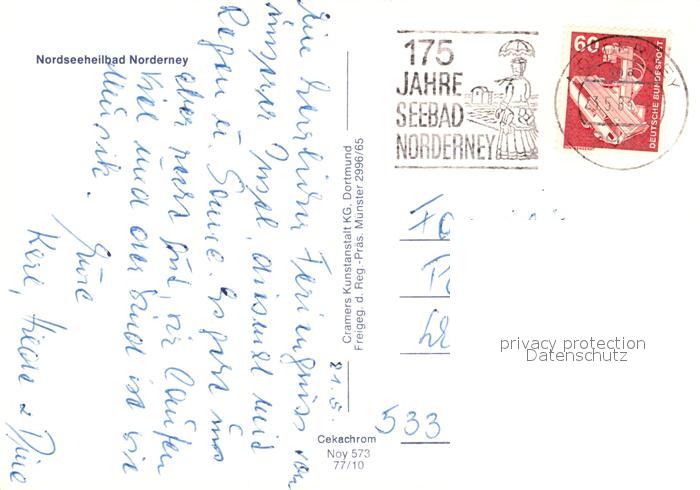 Nordseeheilbad Norderney
Ein herzlicher Feriengruss von
unserer Insel, diesmal mit
Regen u. Sonne. Es geht uns
aber sehr gut, wir laufen
viel und der Wind ist wie
Musik.
Eure
Karl, Hilde &
21.5.
Cramers Kunstanstalt KG, Dortmund
Freigeg. d. Reg.-Präs. Münster 2996/65
Cekachrom
Noy 573
77/10
175
JAHRE
SEEBAD
NORDERNEY
60
DEUTSCHE BUNDESPOST
533
privacy protection
Datenschutz